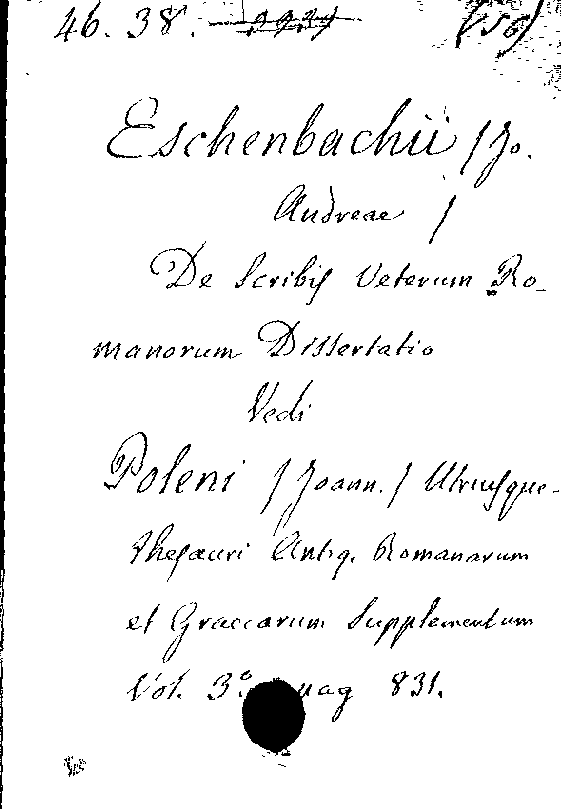 46. 38.
Eschenbachii / Jo.
Andreae /
De Scribis Veterum Ro-
manorum Dissertatio
Vedi
Poleni / Joann. / Utriusque
Thesauri Antiq. Romanarum
et Graecarum Supplementum
Vol. 3.° pag 831.